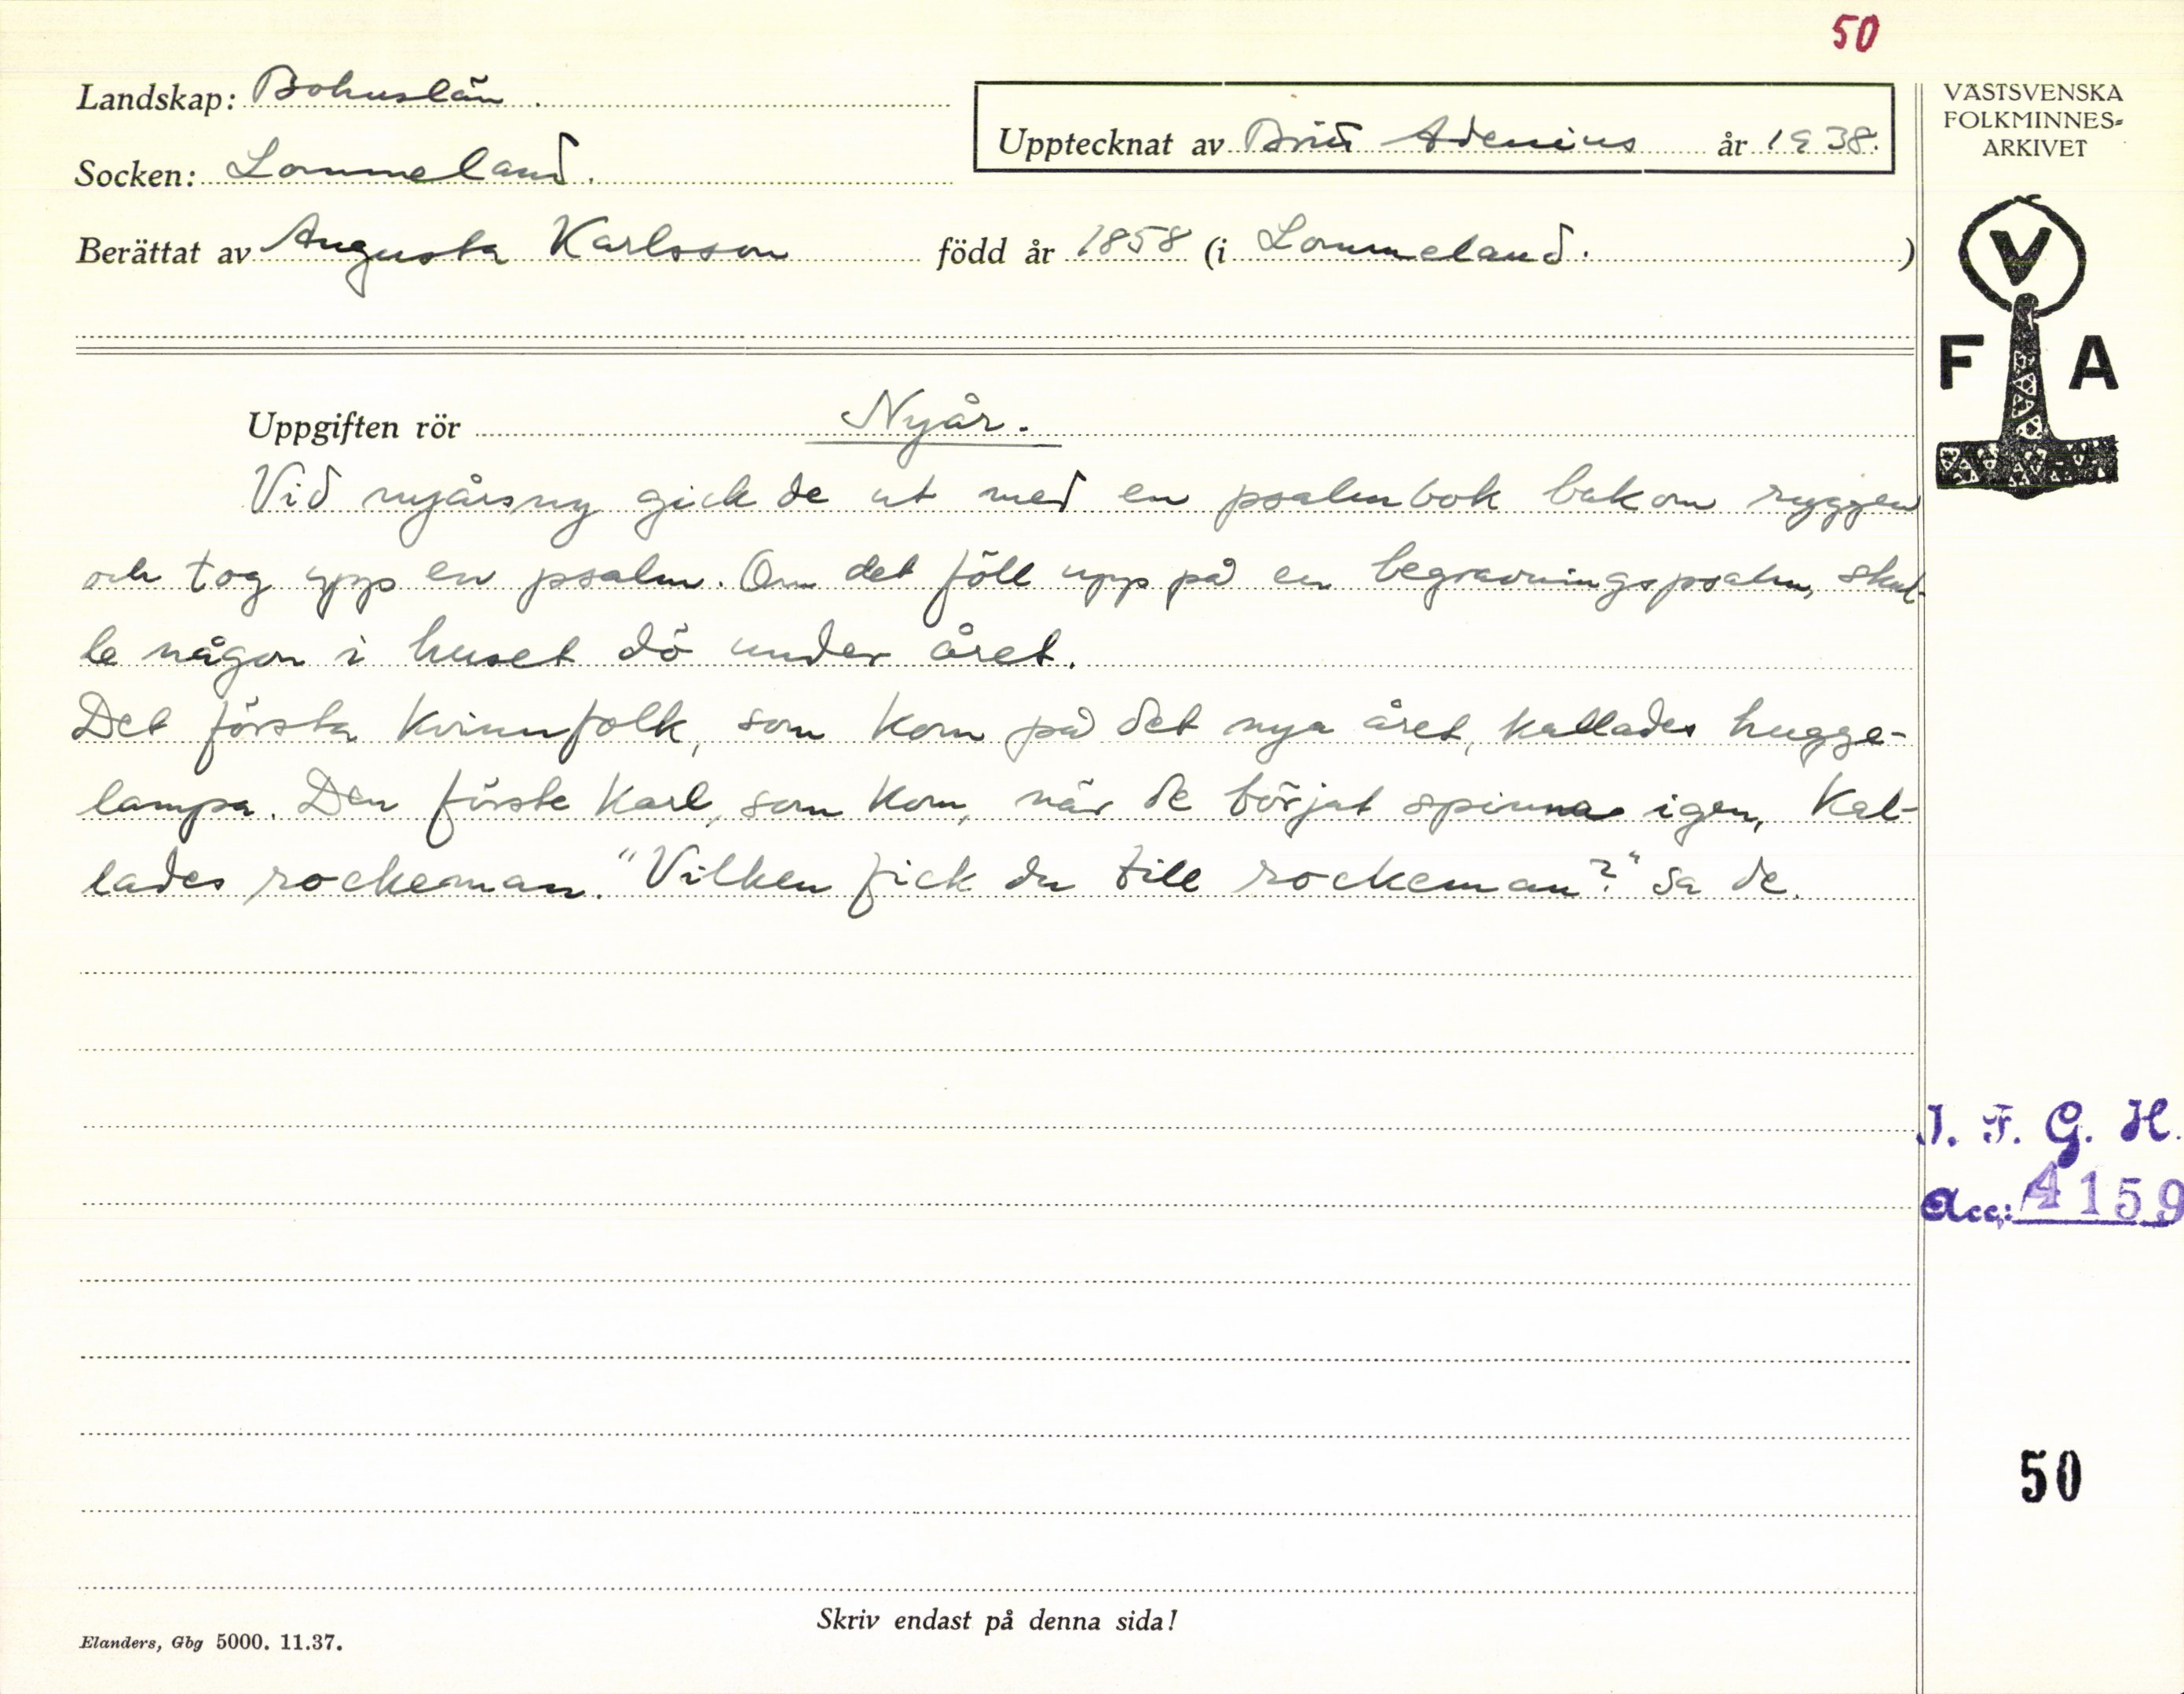 50
Landskap: Bohuslän.
Upptecknat av Britt Adenius år 1938.
Socken: Lommeland.
Berättat av Augusta Karlsson född år 1858 (i Lommeland. )
VÄSTSVENSKA
FOLKMINNES-
ARKIVET
V
F A
Uppgiften rör Nyår.
Vid nyårsny gick de ut med en psalmbok bakom ryggen
och tog upp en psalm. Om det föll upp på en begravningspsalm, skul-
le någon i huset dö under året.
Det första kvinnfolk, som kom på det nya året, kallades hugge-
lampa. Den förste karl, som kom, när de börjat spinna igen, kal-
lades rockeman. "Vilken fick du till rockeman?" sa de.
I. F. G. H.
Acc: 4159
50
Skriv endast på denna sida!
Elanders, Gbg 5000. 11.37.